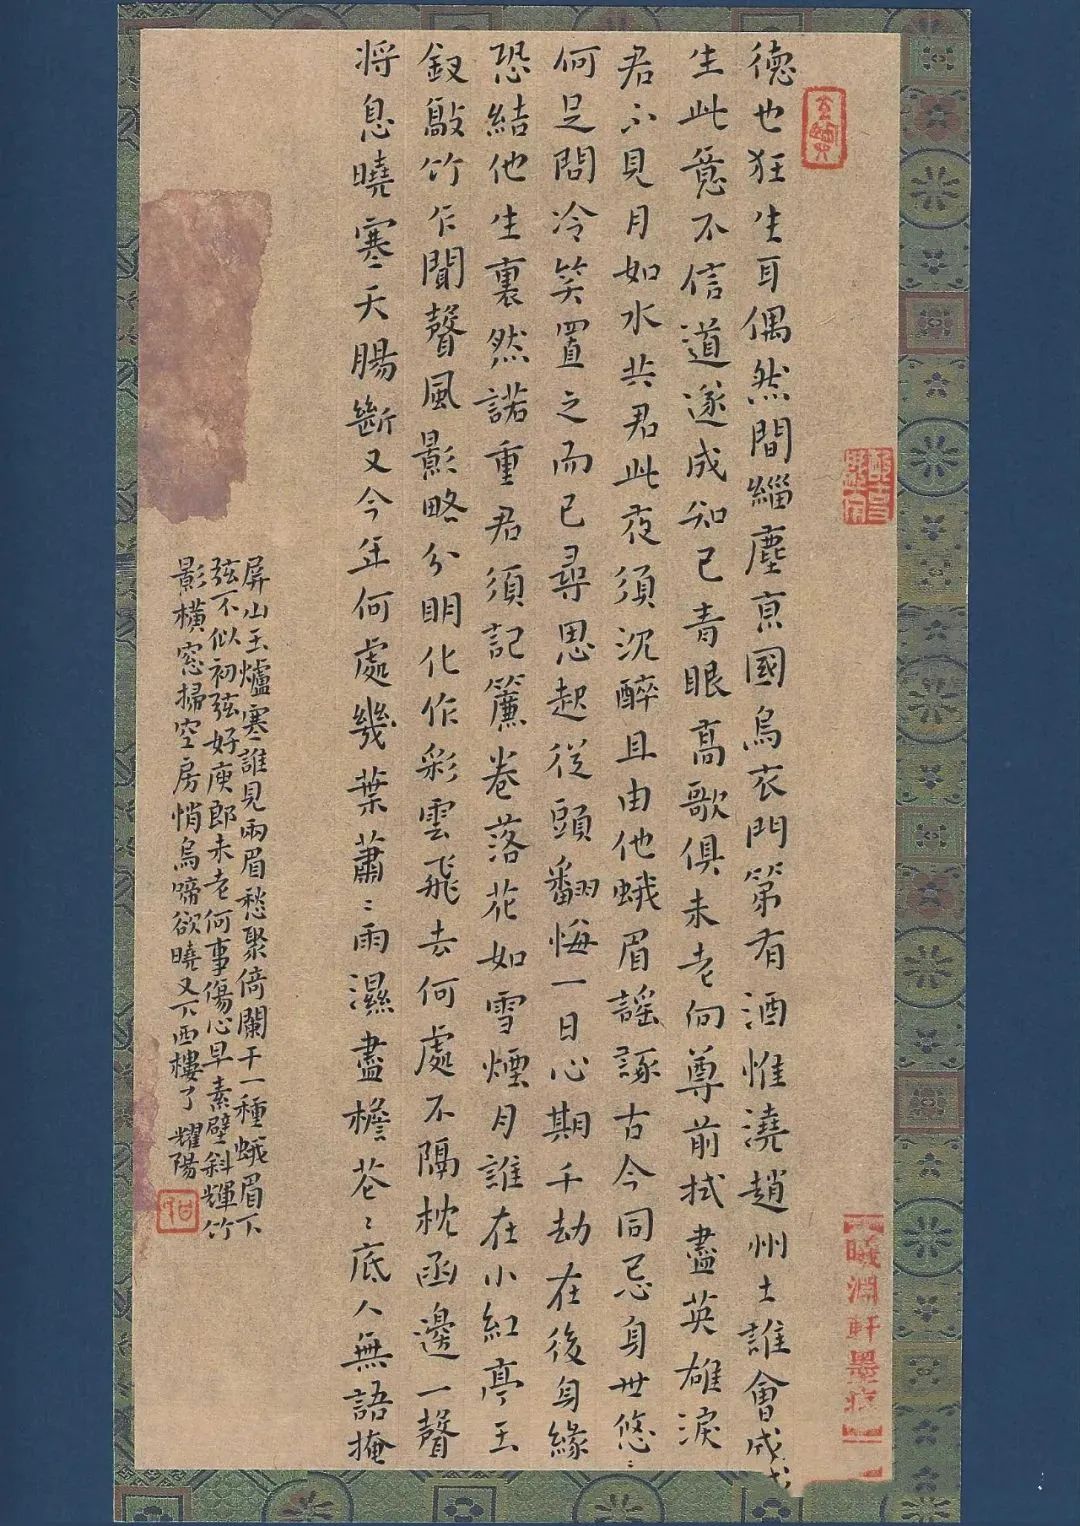 德也狂生耳偶然間緇塵京國烏衣門第有酒惟澆趙州土誰會成
生此意不信道遂成知己青眼高歌俱未老向尊前拭盡英雄淚
君不見月如水共君此夜須沉醉且由他蛾眉謠諑古今同忌身世悠〻
何足問冷笑置之而已尋思起從頭翻悔一日心期千劫在後身緣
恐結他生裏然諾重君須記簾卷落花如雪煙月誰在小紅亭玉
釵敲竹乍聞聲風影略分明化作彩雲飛去何處不隔枕函邊一聲
將息曉寒天腸斷又今年何處幾葉蕭〻雨濕盡檐花〻底人無語掩
屏山玉爐寒誰見兩眉愁聚倚闌干一種蛾眉下
弦不似初弦好庾郎未老何事傷心早素壁斜輝竹
影橫窓掃空房悄烏啼欲曉又下西樓了耀陽
曦淵軒墨痕